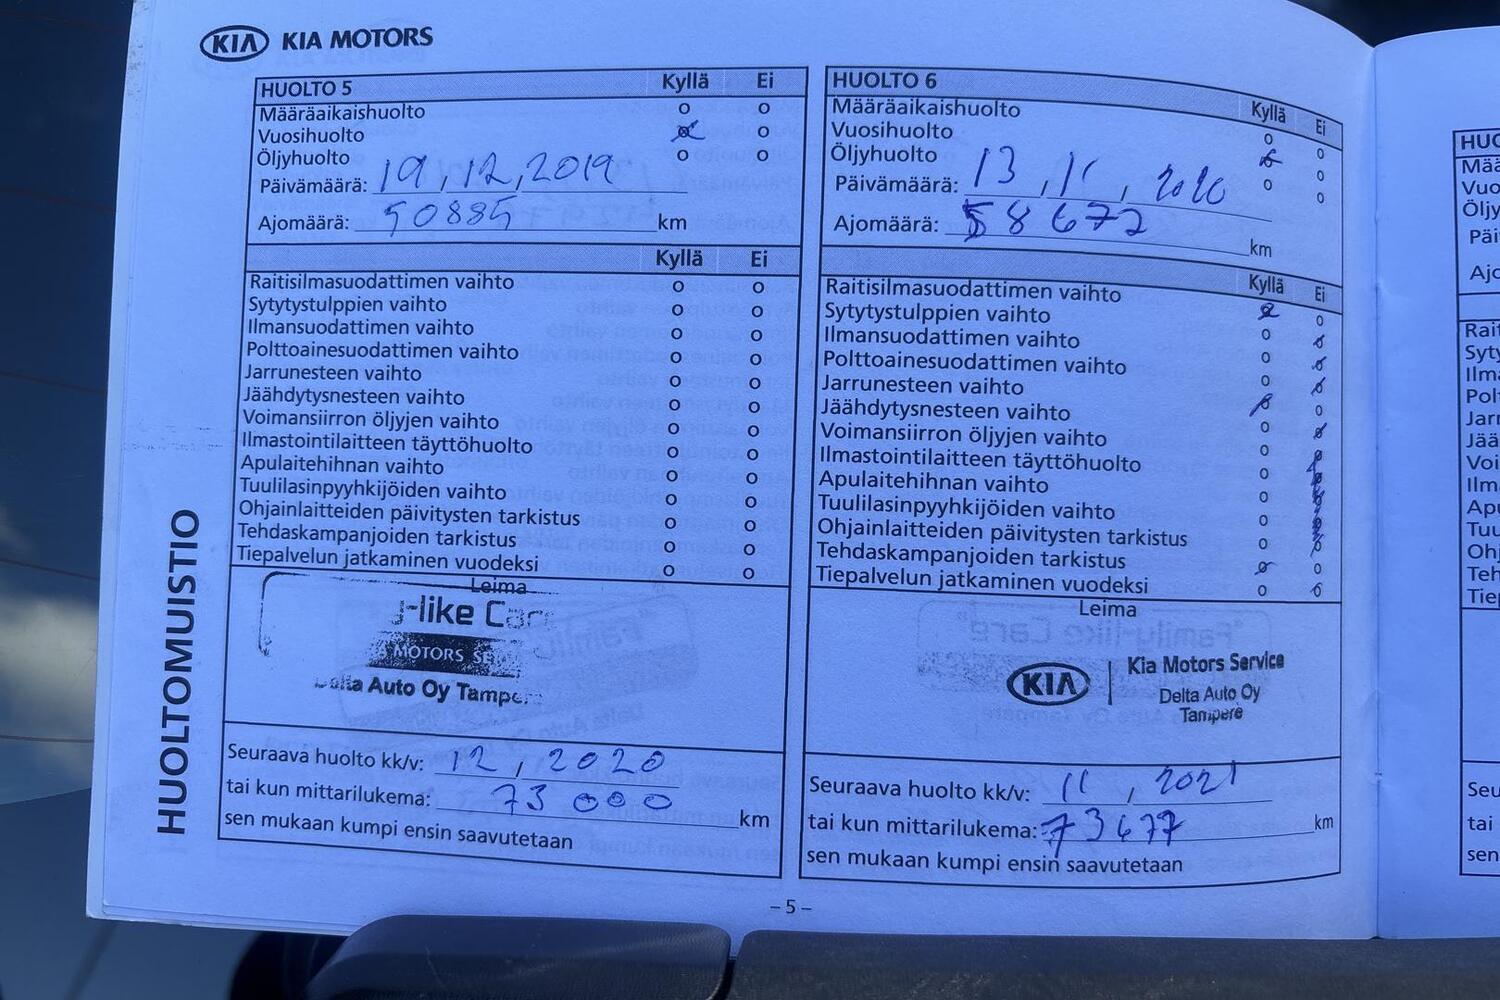 KIA KIA MOTORS
HUOLTO 5 Kyllä Ei
Määräaikaishuolto
Vuosihuolto
Öljyhuolto
Päivämäärä: 19,12,2019
Ajomäärä: 50885 km
Kyllä Ei
Raitisilmasuodattimen vaihto
Sytytystulppien vaihto
Ilmansuodattimen vaihto
Polttoainesuodattimen vaihto
Jarrunesteen vaihto
Jäähdytysnesteen vaihto
Voimansiirron öljyjen vaihto
Ilmastointilaitteen täyttöhuolto
Apulaitehihnan vaihto
Tuulilasinpyyhkijöiden vaihto
Ohjainlaitteiden päivitysten tarkistus
Tehdaskampanjoiden tarkistus
Tiepalvelun jatkaminen vuodeksi
Leima
-like Care
MOTORS SE
Delta Auto Oy Tampere
Seuraava huolto kk/v: 12, 2020
tai kun mittarilukema: 73 000 km
sen mukaan kumpi ensin saavutetaan
HUOLTO 6 Kyllä Ei
Määräaikaishuolto
Vuosihuolto
Öljyhuolto
Päivämäärä: 13, 11, 2020
Ajomäärä: 58672 km
Kyllä Ei
Raitisilmasuodattimen vaihto
Sytytystulppien vaihto
Ilmansuodattimen vaihto
Polttoainesuodattimen vaihto
Jarrunesteen vaihto
Jäähdytysnesteen vaihto
Voimansiirron öljyjen vaihto
Ilmastointilaitteen täyttöhuolto
Apulaitehihnan vaihto
Tuulilasinpyyhkijöiden vaihto
Ohjainlaitteiden päivitysten tarkistus
Tehdaskampanjoiden tarkistus
Tiepalvelun jatkaminen vuodeksi
Leima
KIA Kia Motors Service
Delta Auto Oy
Tampere
Seuraava huolto kk/v: 11, 2021
tai kun mittarilukema: 73677 km
sen mukaan kumpi ensin saavutetaan
HUOLTOMUISTIO
– 5 –